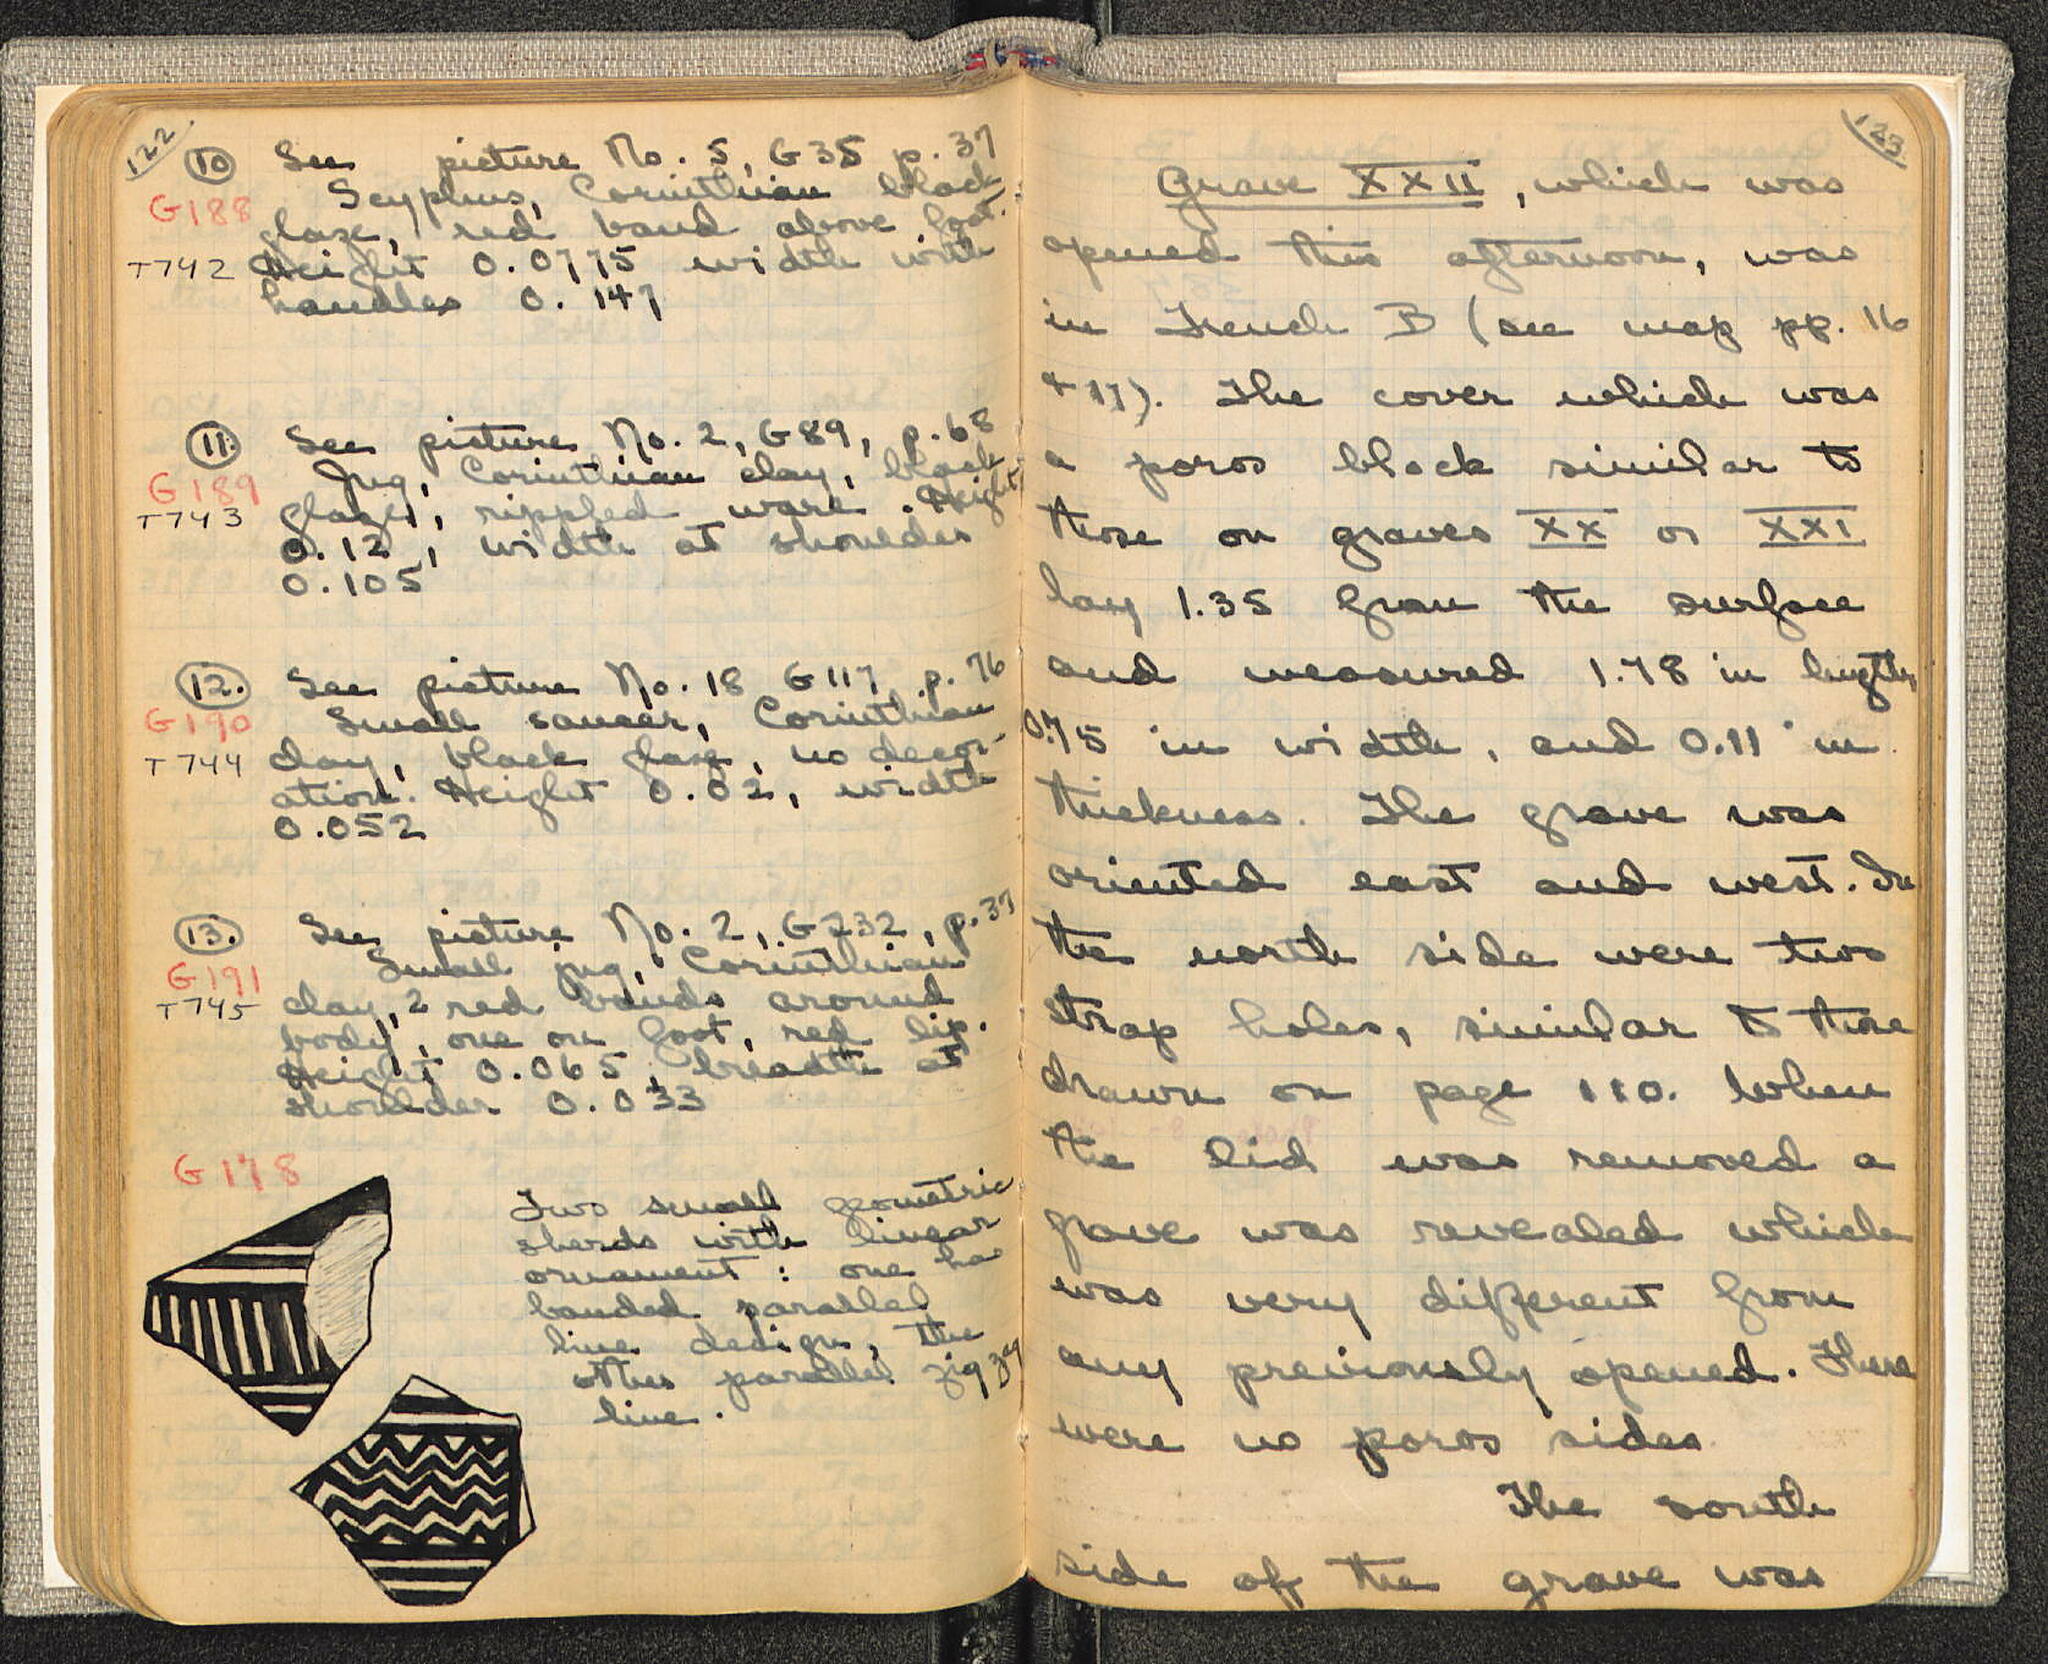 122
10 See picture No. 5, G35 p. 37
Scyphus, Corinthian black
G188 glaze, red band above foot.
T742 Height 0.0775 width with
handles 0.147
11. See picture No. 2, G89, p. 68
Jug, Corinthian clay, black
G189 glaze, rippled ware. Height
T743 0.12, width at shoulder
0.105
12. See picture No. 18 G117 p. 76
G190 Small saucer, Corinthian
T744 clay, black glaze, no decor-
ation. Height 0.02, width
0.052
13. See picture No. 2, G232, p. 37
G191 Small jug, Corinthian
T745 clay, 2 red bands around
body, one on foot, red lip.
Height 0.065, breadth at
shoulder 0.033
G178
Two small geometric
sherds with linear
ornament: one has
banded parallel
line design, the
other parallel zig zag
line.
123
Grave XXII, which was
opened this afternoon, was
in Trench B (see map pp. 16
+ 17). The cover which was
a poros block similar to
those on graves XX or XXI
lay 1.35 from the surface
and measured 1.78 in length,
0.75 in width, and 0.11 in
thickness. The grave was
oriented east and west. In
the north side were two
strap holes, similar to those
drawn on page 110. When
the lid was removed a
grave was revealed which
was very different from
any previously opened. There
were no poros sides
The south
side of the grave was